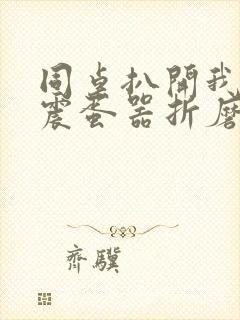 同桌扒開我
震蛋器折磨
齊驥